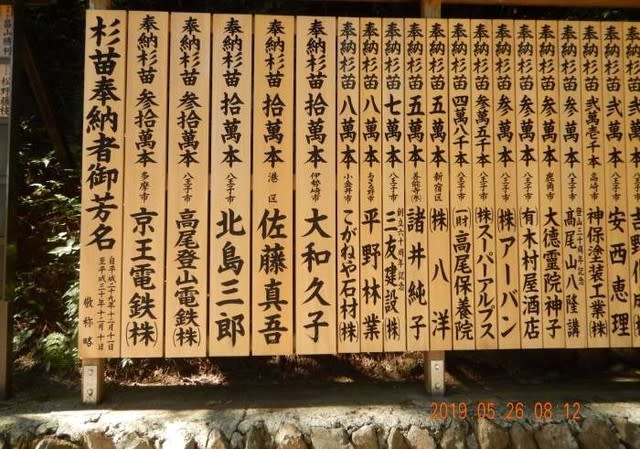 杉苗奉納者御芳名
自平成二十九年十二月一日
至平成三十年十二月一日
敬称略
奉納杉苗 参拾萬本 多摩市 京王電鉄(株)
奉納杉苗 参拾萬本 八王子市 高尾登山電鉄(株)
奉納杉苗 拾萬本 八王子市 北島三郎
奉納杉苗 拾萬本 港区 佐藤真吾
奉納杉苗 拾萬本 伊勢崎市 大和久子
奉納杉苗 八萬本 小金井市 こがねや石材(株)
奉納杉苗 八萬本 あきる野市 平野林業
奉納杉苗 七萬本 創立六十周年記念 三友建設(株)
奉納杉苗 五萬本 諸井純子
奉納杉苗 五萬本 新宿区 (株)八洋
奉納杉苗 四萬八千本 八王子市 (一財)高尾保養院
奉納杉苗 参萬五千本 八王子市 (株)スーパーアルプス
奉納杉苗 参萬本 八王子市 (株)アーバン
奉納杉苗 参萬本 八王子市 (有)木村屋酒店
奉納杉苗 参萬本 鹿角市 大徳霊院神子
奉納杉苗 参萬本 登山三十周年記念 髙尾山八隆講
奉納杉苗 弐萬壱千本 高崎市 神保塗装工業(株)
奉納杉苗 弐萬本 八王子市 安西恵理
2019.05.26 08:12